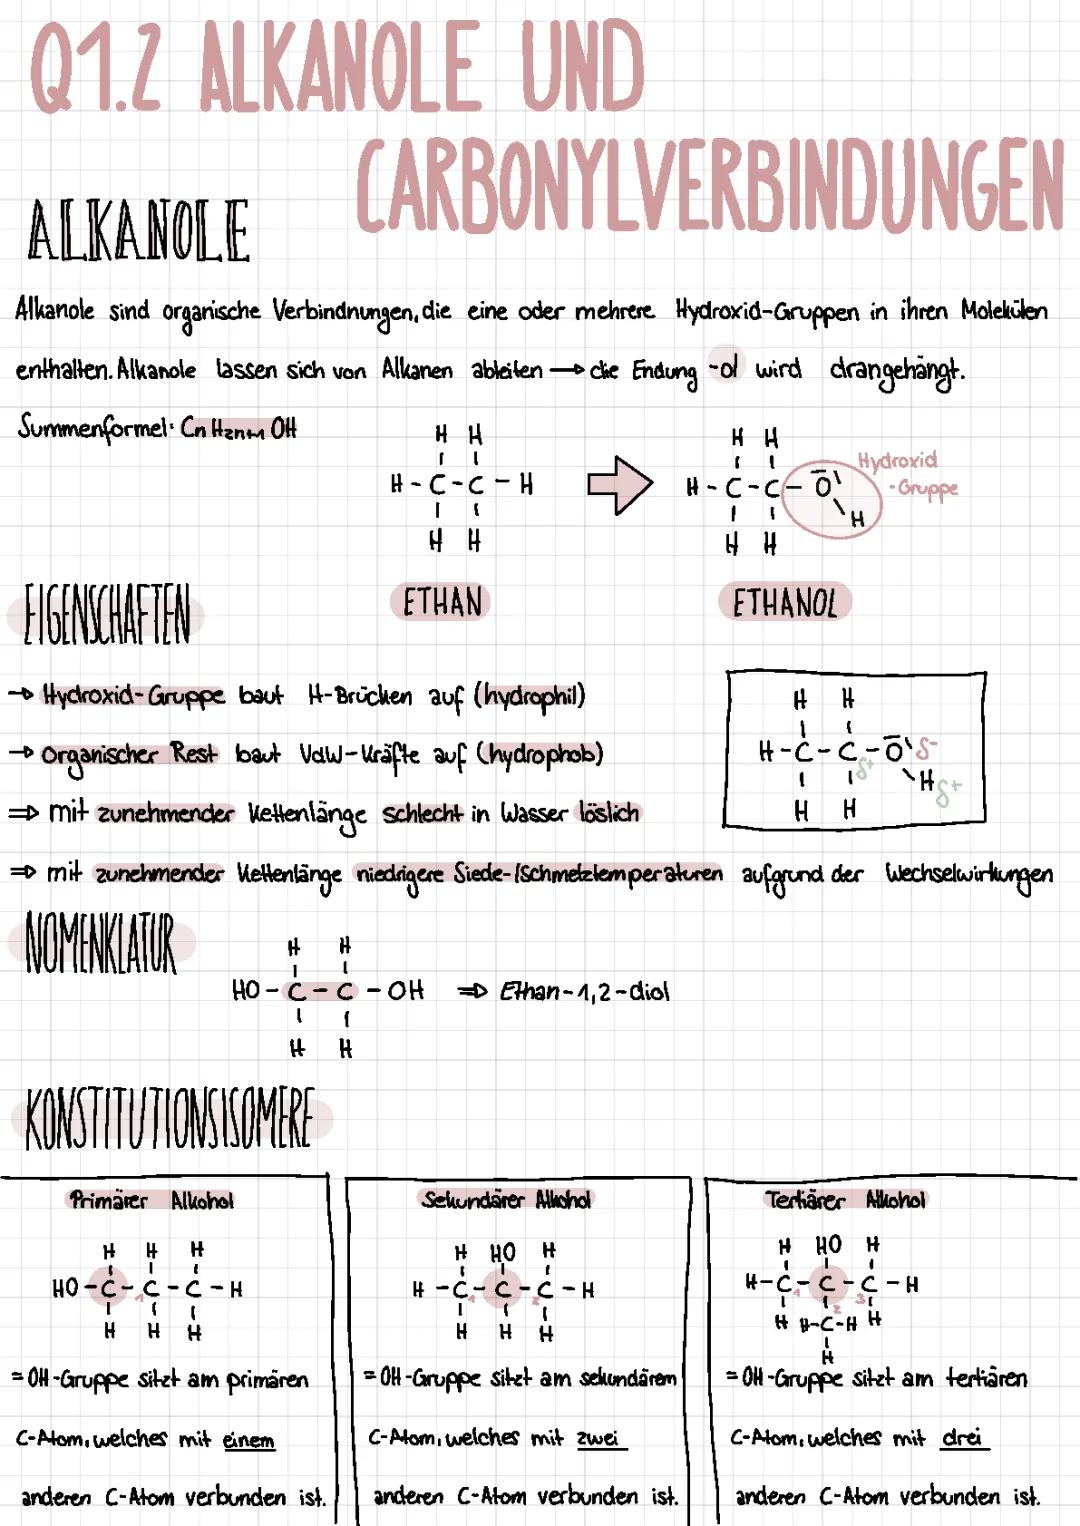 Q1.2 ALKANOLE UND
CARBONYLVERBINDUNGEN
ALKANOLE
Alkanole sind organische Verbindnungen, die eine oder mehrere Hydroxid-Gruppen in ihren Molekülen
enthalten. Alkanole lassen sich von Alkanen ableiten → die Endung -ol wird drangehängt.
Summenformel: CnH2n+1 OH
H H
H - C - C - H
H H
H H
H - C - C - O
H
H H
Hydroxid
-Gruppe
ETHAN
ETHANOL
EIGENSCHAFTEN
→ Hydroxid-Gruppe baut H-Brücken auf (hydrophil)
→ Organischer Rest baut VdW-Kräfte auf (hydrophob)
⇒ mit zunehmender Kettenlänge schlecht in Wasser löslich
⇒ mit zunehmender Kettenlänge niedrigere Siede-/Schmelztemperaturen aufgrund der Wechselwirkungen
H H
H - C - C - O δ-
δ+ H δ+
H H
NOMENKLATUR
H H
HO - C - C - OH ⇒ Ethan-1,2-diol
H H
KONSTITUTIONSISOMERE
Primärer Alkohol
H H H
HO - C - C - C - H
1
H H H
= OH-Gruppe sitzt am primären
C-Atom, welches mit einem
anderen C-Atom verbunden ist.
Sekundärer Alkohol
H HO H
H - C - C - C - H
1 2
H H H
= OH-Gruppe sitzt am sekundärem
C-Atom, welches mit zwei
anderen C-Atom verbunden ist.
Tertiärer Alkohol
H HO H
H - C - C - C - H
1 2 3
H H-C-H H
H
= OH-Gruppe sitzt am tertiären
C-Atom, welches mit drei
anderen C-Atom verbunden ist.